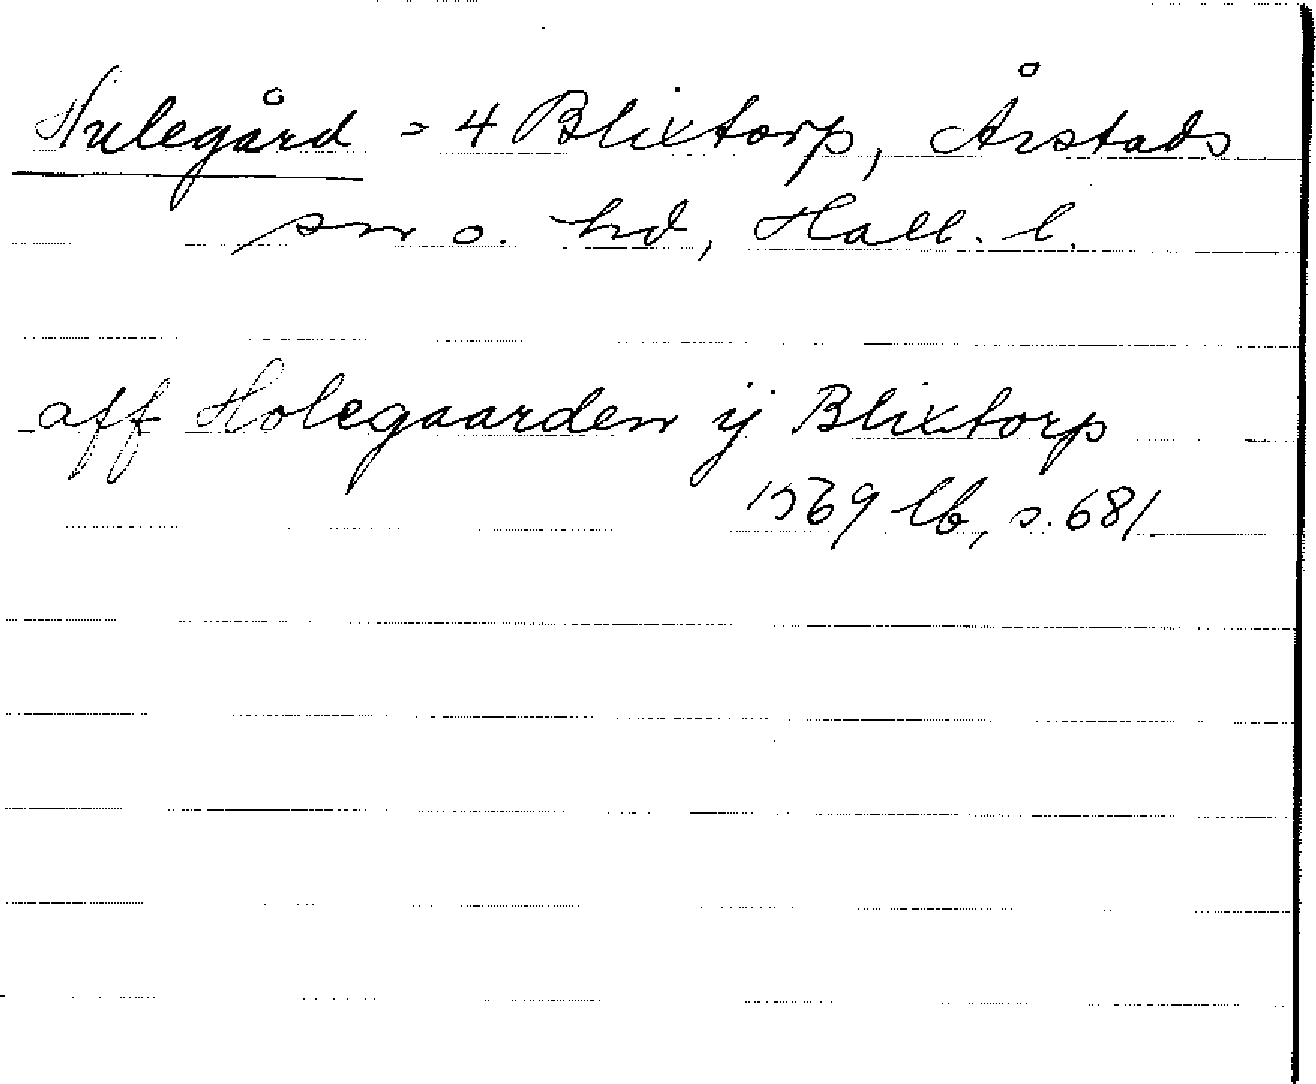 Hulegård = 4 Blixtorp, Årstads
sn o. hd, Hall. l.
aff Holegaarden ij Blixtorp
1569 lb, s. 681